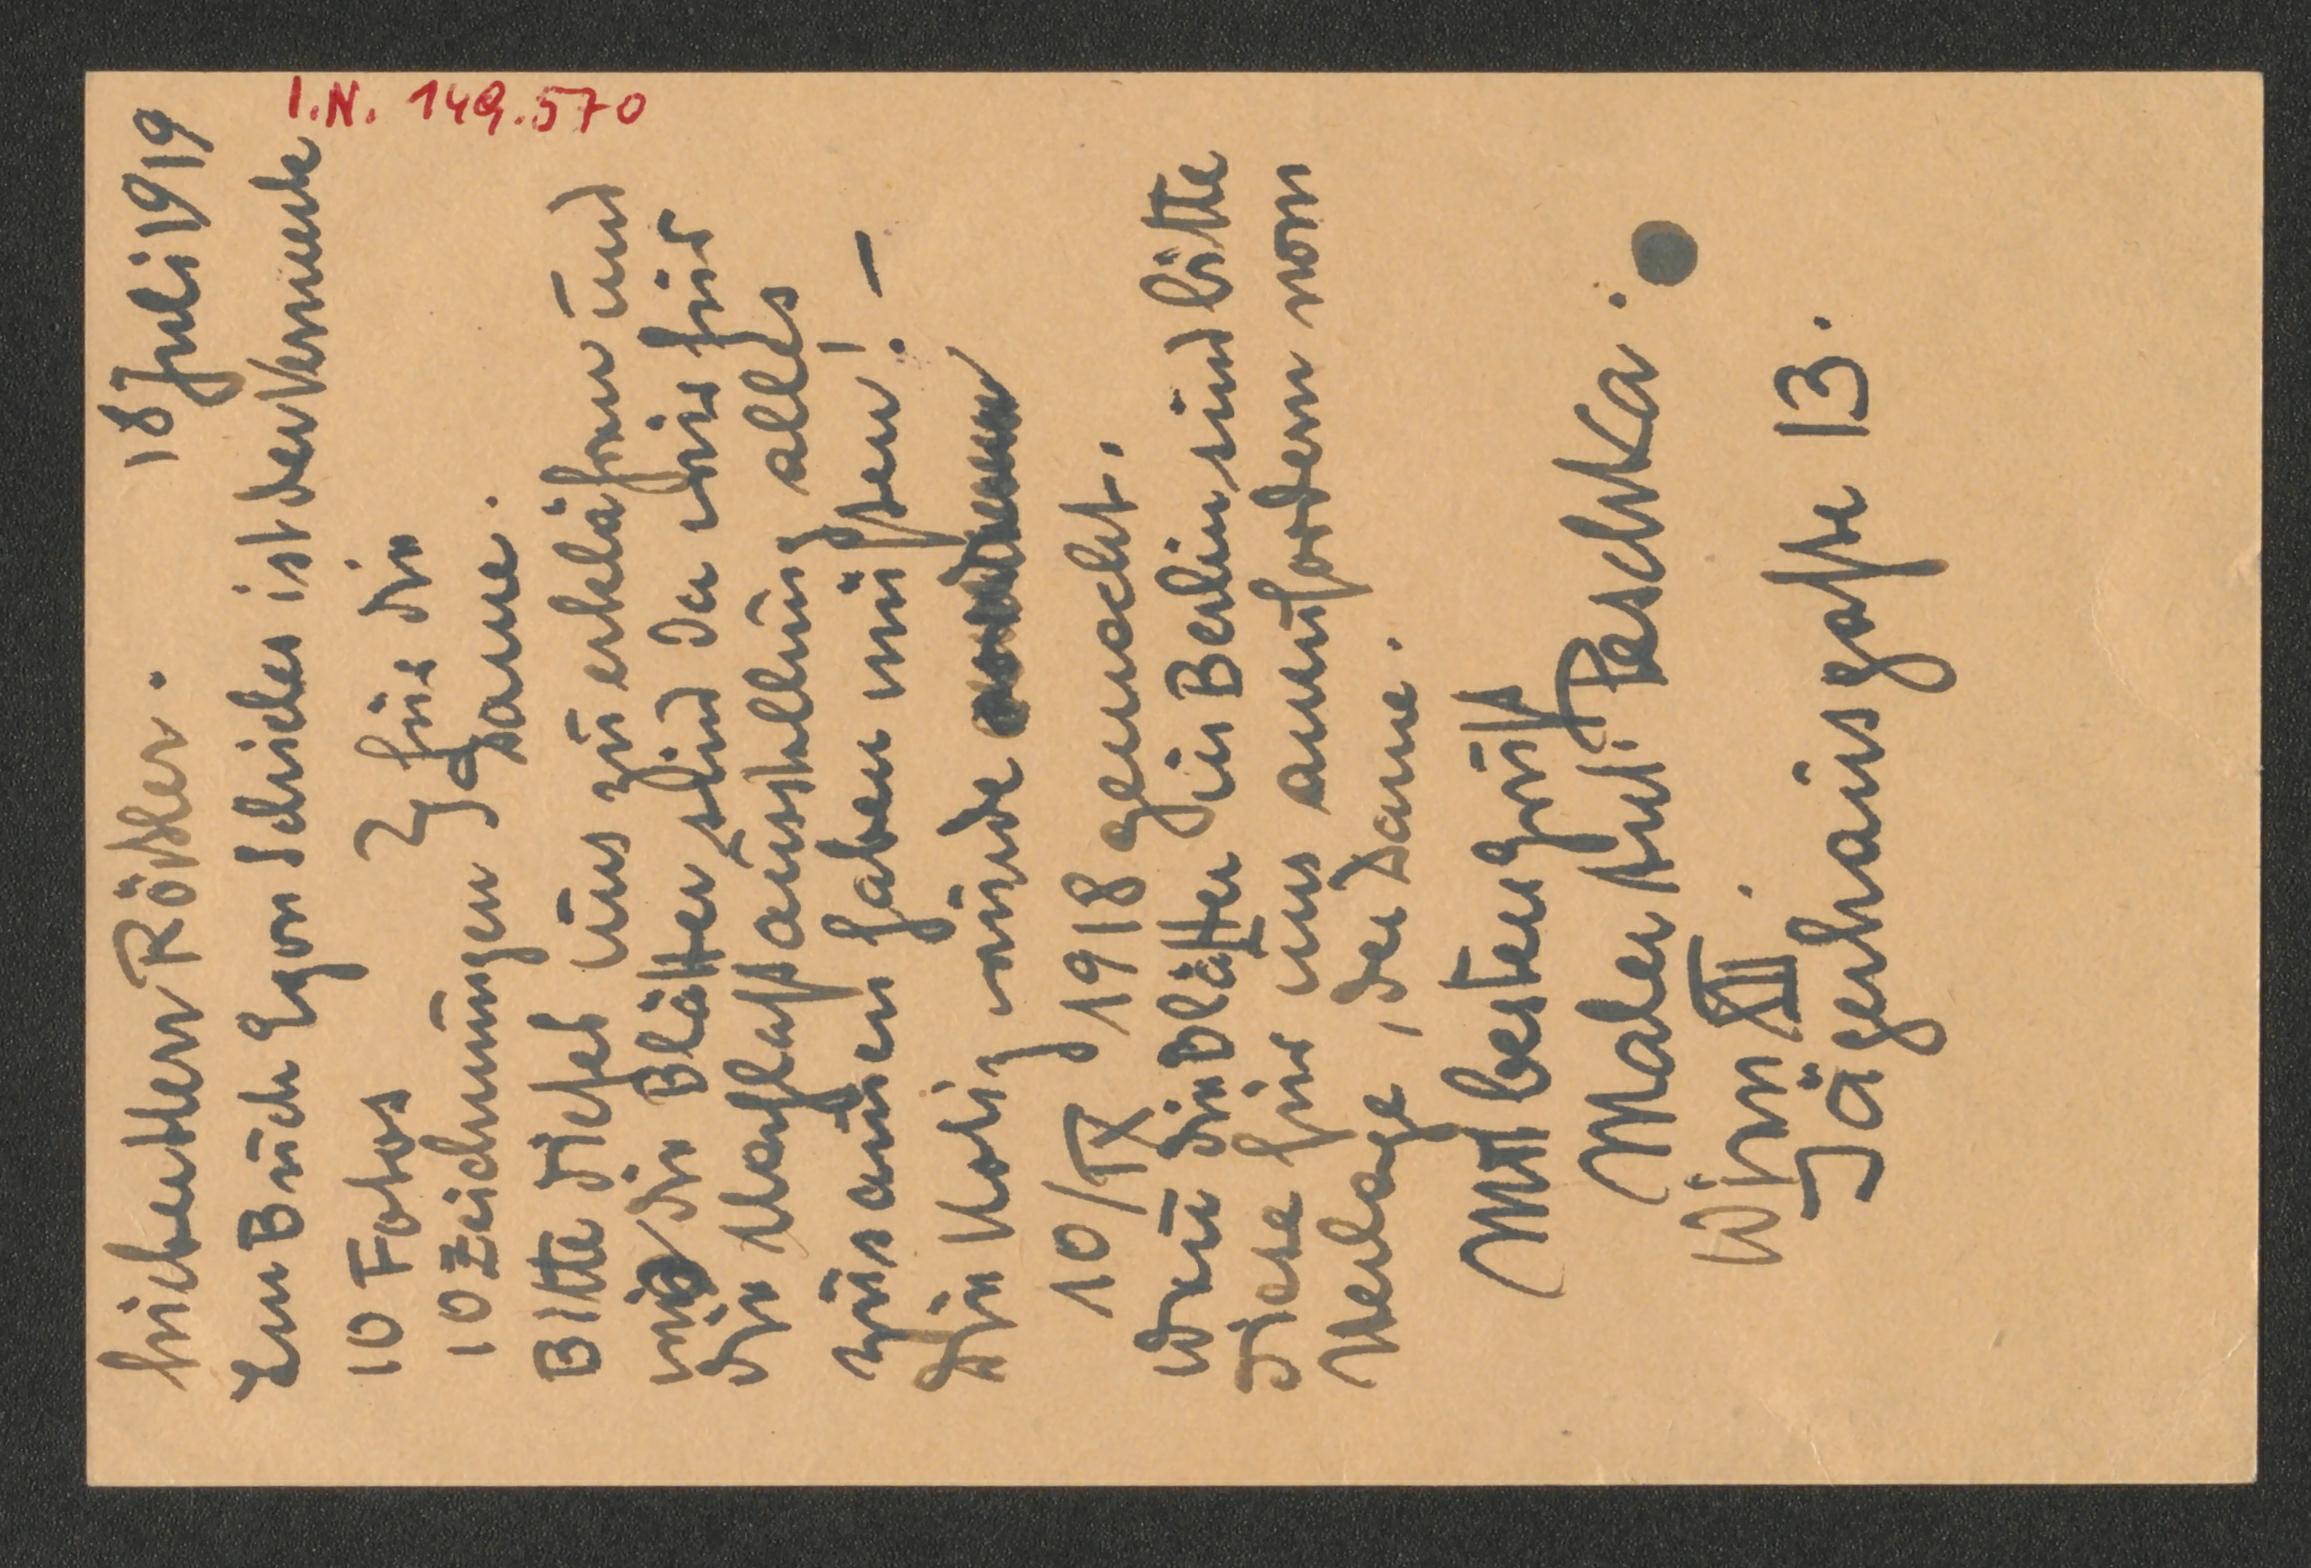 I.N. 149.570
18 Juli 1919
Lieber Herr Rößler.
Im Buch Egon Schieles ist der Vermerk
10 Fotos } für die
10 Zeichnungen } Dame.
Bitte dieses uns zu erklären und
wo die Blätter sind da wir für
die Nachlaßausstellung alles
zusammen haben müssen! –
Die Notiz wurde
10/IX 1918 gemacht.
Sind die Blätter in Berlin und bitte
diese für uns anzufordern vom
Verlage, der Dame.
Mit besten Gruß
Maler Ant. Peschka.
Wien XII.
Jägerhausgasse 13.